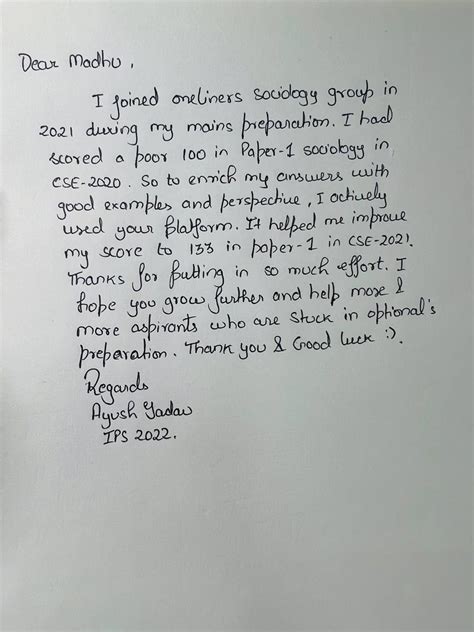 Dear Madhu,
I joined oneliners sociology group in
2021 during my mains preparation. I had
scored a poor 100 in Paper-1 sociology in
CSE-2020. So to enrich my answers with
good examples and perspective, I actively
used your platform. It helped me improve
my score to 133 in paper-1 in CSE-2021.
Thanks for putting in so much effort. I
hope you grow further and help more &
more aspirants who are stuck in optional's
preparation. Thank you & Good luck :).
Regards
Ayush Yadav
IPS 2022.